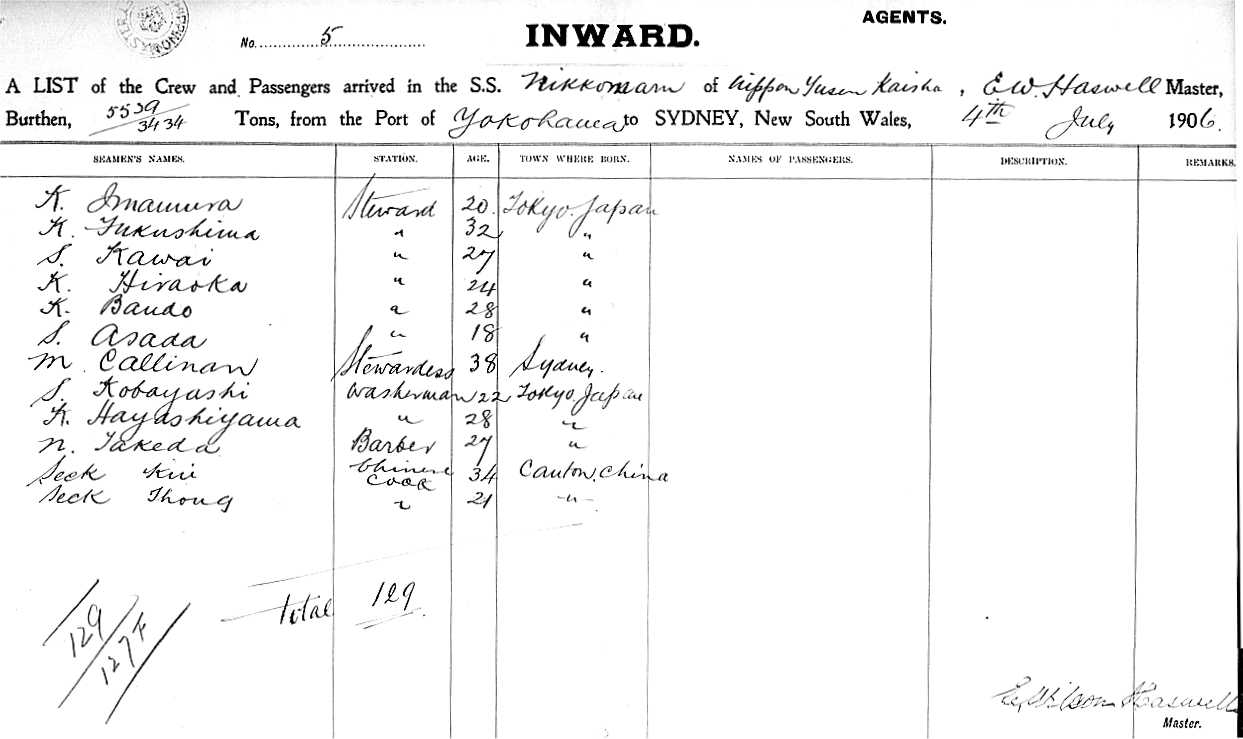 AGENTS.
No. 5
INWARD.
A LIST of the Crew and Passengers arrived in the S.S. Nikkomaru of Nippon Yusen Kaisha, E.W. Haswell Master,
Burthen, 5539/3434 Tons, from the Port of Yokohama to SYDNEY, New South Wales, 4th July 1906.
SEAMEN'S NAMES. STATION. AGE. TOWN WHERE BORN. NAMES OF PASSENGERS. DESCRIPTION. REMARKS.
K. Imamura Steward 20 Tokyo. Japan
K. Fukushima " 32 "
S. Kawai " 27 "
K. Hiraoka " 24 "
K. Bando " 28 "
S. Asada " 18 "
M. Callinan Stewardess 38 Sydney.
S. Kobayashi Washerman 22 Tokyo. Japan
K. Hayashiyama " 28 "
N. Takeda Barber 27 "
Seck Chinese Cook 34 Canton. China
Seck Thong " 21 "
Total 129
129
E. Wilson Haswell
Master.